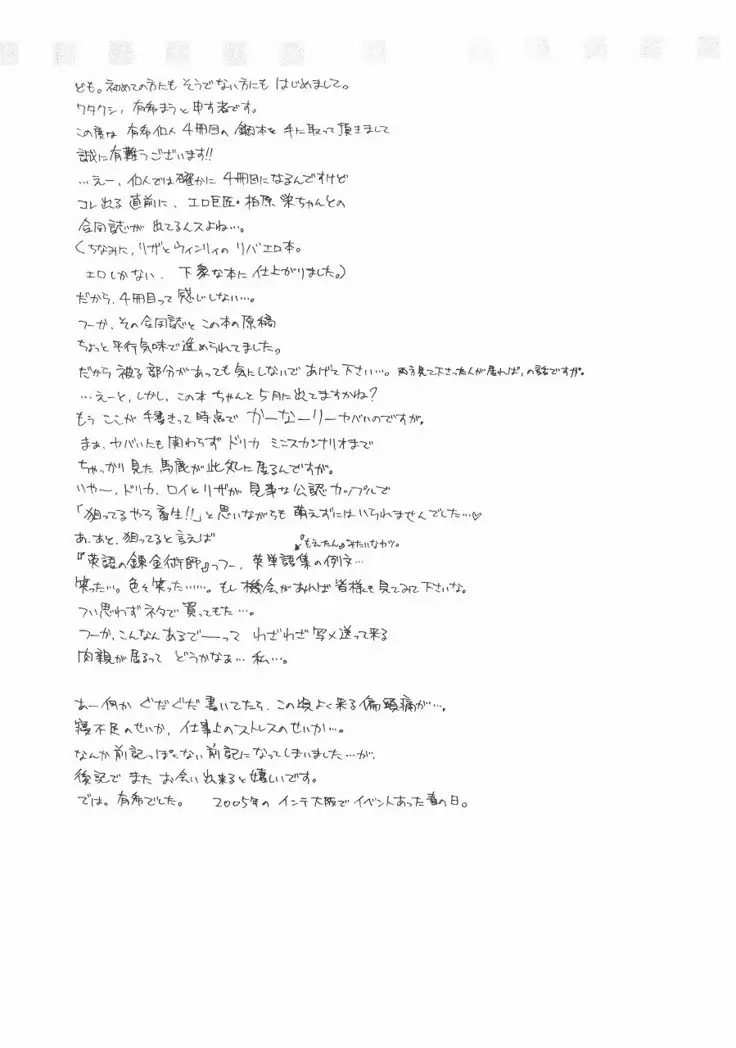 ども。初めての方にも そうでない方にも はじめまして。
ワタクシ、有希まうと申す者です。
この度は 有希個人 4冊目の 鋼本を 手に取って頂きまして
誠に有難うございます!!
…えー、個人では確かに 4冊目になるんですけど
コレ出る直前に、エロ巨匠・柏原 栄ちゃんとの
合同誌が 出てるんスよね…。
(ちなみに、リザとウィンリィの リバエロ本。
エロしかない、下衆な本に 仕上がりました。)
だから、4冊目って感じしない…。
つーか、その合同誌と この本の原稿
ちょっと平行気味で進められてました。
だから被る部分があっても気にしないで あげて下さい…。両方見て下さった人が居れば、の話ですが。
…えーと、しかし、この本 ちゃんと5月に出てますかね?
もう ここが 手書きって時点で かーなーりーヤバいのですが。
まぁ、ヤバいにも関わらず ドリカ ミニスカシナリオまで
ちゃっかり見た 馬鹿が此処に居るんですが。
いやー、ドリカ、ロイとリザが 見事な公認カップルで
「狙ってるやろ畜生!!」と思いながらも 萌えずにはいられませんでした…♡
あ、あと、狙ってると言えば
『もえたん』みたいなヤツ。
『英語の錬金術師』っつー、英単語集の例文…
笑った…。色々笑った……。もし機会があれば皆様も見てみて下さいな。
つい思わずネタで買ってもた…。
つーか、こんなんあるでーって わざわざ写メ送って来る
肉親が居るって どうかなぁ… 私…。
あー何か ぐだぐだ書いてたら、この頃よく来る偏頭痛が…。
寝不足のせいか、仕事上のストレスのせいか…。
なんか前記っぽくない前記になってしまいました…が、
後記で また お会い出来ると嬉しいです。
では。有希でした。 2005年の インテ大阪で イベントあった春の日。